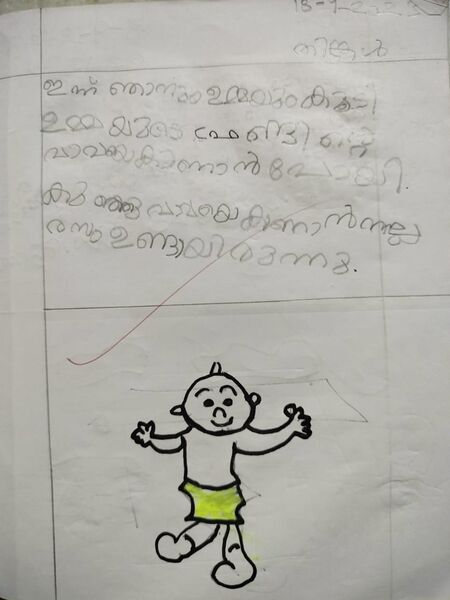 13-1-2025
തിങ്കൾ
ഇന്ന് ഞാനും ഉമ്മയും കൂടി
ഉമ്മയുടെ ഫ്രണ്ടിന്റെ
വാവയെ കാണാൻ പോയി.
കുഞ്ഞു വാവയെ കാണാൻ നല്ല
രസം ഉണ്ടായിരുന്നു.